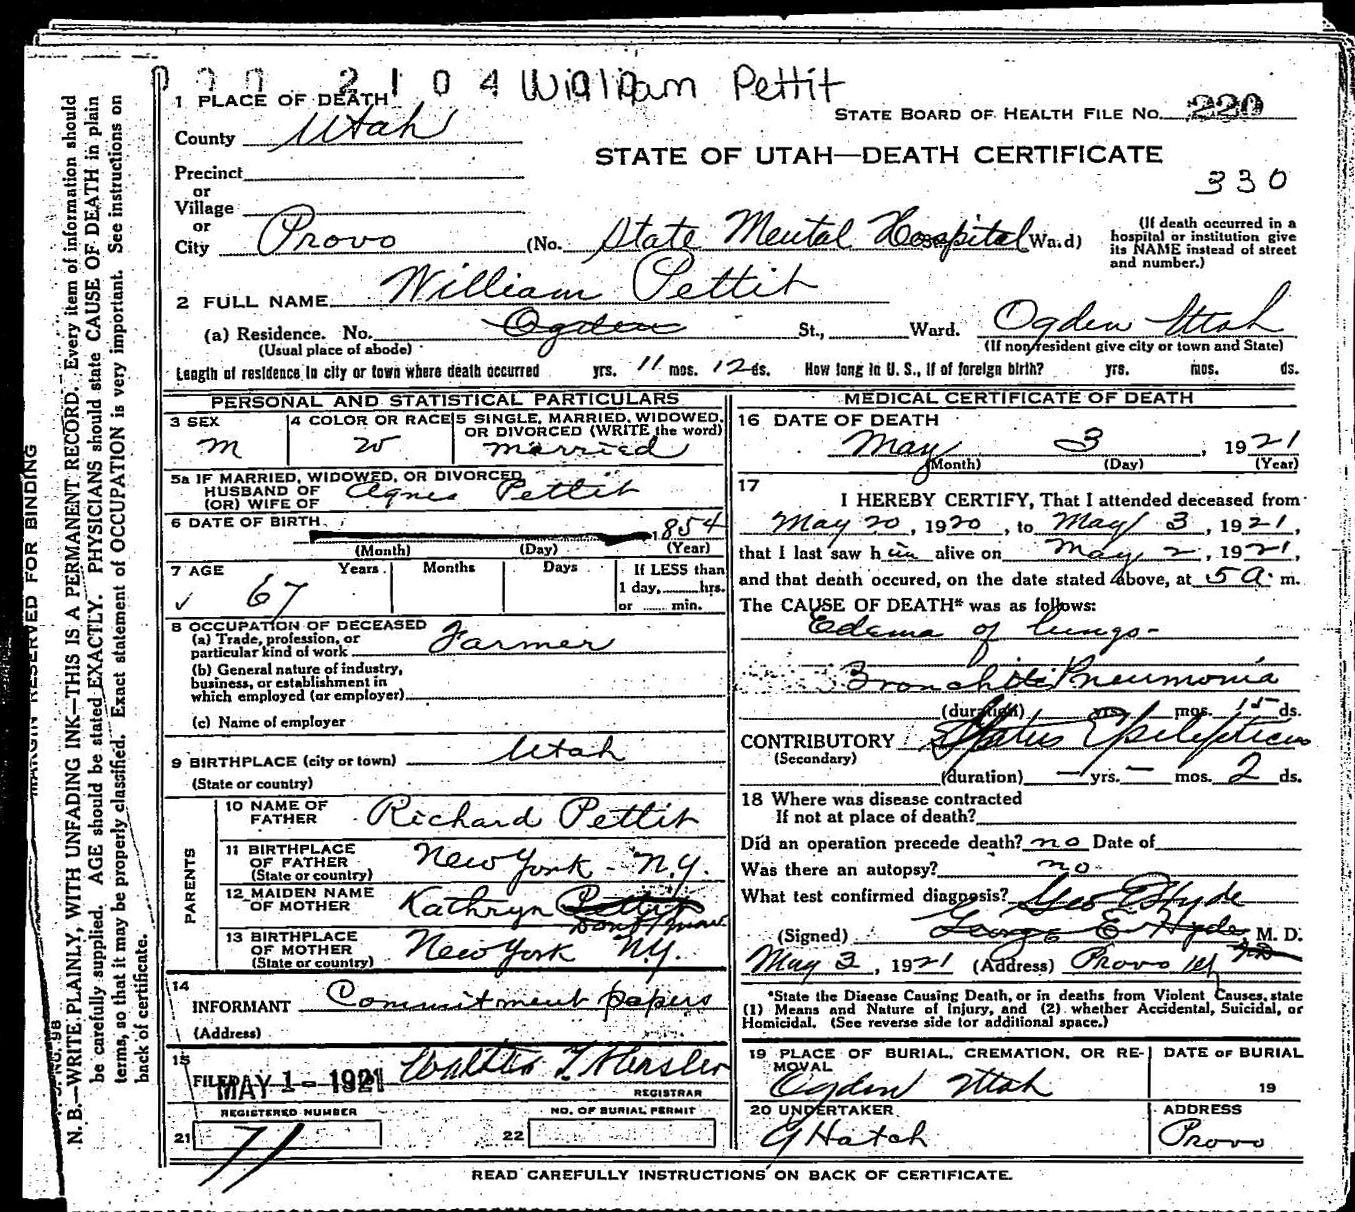 2 1 0 4 William Pettit
1 PLACE OF DEATH
STATE BOARD OF HEALTH FILE NO. 220
County Utah
STATE OF UTAH—DEATH CERTIFICATE
330
Precinct
or
Village
or
City Provo (No. State Mental Hospital Ward)
(If death occurred in a hospital or institution give its NAME instead of street and number.)
2 FULL NAME William Pettit
(a) Residence. No. Ogden St., Ward. Ogden Utah
(Usual place of abode) (If nonresident give city or town and State)
Length of residence in city or town where death occurred yrs. 11 mos. 12 ds. How long in U. S., if of foreign birth? yrs. mos. ds.
PERSONAL AND STATISTICAL PARTICULARS
3 SEX M
4 COLOR OR RACE W
5 SINGLE, MARRIED, WIDOWED, OR DIVORCED (WRITE the word) married
5a IF MARRIED, WIDOWED, OR DIVORCED
HUSBAND OF Agnes Pettit
(OR) WIFE OF
6 DATE OF BIRTH 1854
(Month) (Day) (Year)
7 AGE Years Months Days If LESS than
1 day, hrs.
or min.
67
8 OCCUPATION OF DECEASED
(a) Trade, profession, or
particular kind of work Farmer
(b) General nature of industry,
business, or establishment in
which employed (or employer)
(c) Name of employer
9 BIRTHPLACE (city or town) Utah
(State or country)
PARENTS
10 NAME OF FATHER Richard Pettit
11 BIRTHPLACE OF FATHER New York - N.Y.
(State or country)
12 MAIDEN NAME OF MOTHER Kathryn Pettit
Dont know
13 BIRTHPLACE OF MOTHER New York N.Y.
(State or country)
14
INFORMANT Commitment papers
(Address)
15
FILED MAY 1 - 1921 Walter T. Hensler
REGISTRAR
REGISTERED NUMBER
NO. OF BURIAL PERMIT
21 71
22
MEDICAL CERTIFICATE OF DEATH
16 DATE OF DEATH
May 3, 1921
(Month) (Day) (Year)
17
I HEREBY CERTIFY, That I attended deceased from
May 20, 1920, to May 3, 1921,
that I last saw him alive on May 2, 1921,
and that death occured, on the date stated above, at 5 A. m.
The CAUSE OF DEATH* was as follows:
Edema of lungs-
Pneumonia
(duration) yrs. mos. 15 ds.
CONTRIBUTORY Status Epilepticus
(Secondary)
(duration) — yrs. — mos. 2 ds.
18 Where was disease contracted
If not at place of death?
Did an operation precede death? no Date of
Was there an autopsy? no
What test confirmed diagnosis? Geo E Hyde
(Signed) George E Hyde M. D.
May 3, 1921 (Address) Provo Ut
*State the Disease Causing Death, or in deaths from Violent Causes, state
(1) Means and Nature of Injury, and (2) whether Accidental, Suicidal, or
Homicidal. (See reverse side for additional space.)
19 PLACE OF BURIAL, CREMATION, OR REMOVAL
Ogden Utah
DATE OF BURIAL
19
20 UNDERTAKER
G Hatch
ADDRESS
Provo
READ CAREFULLY INSTRUCTIONS ON BACK OF CERTIFICATE.
MARGIN RESERVED FOR BINDING
N. B.—WRITE PLAINLY, WITH UNFADING INK—THIS IS A PERMANENT RECORD. Every item of information should
be carefully supplied. AGE should be stated EXACTLY. PHYSICIANS should state CAUSE OF DEATH in plain
terms, so that it may be properly classified. Exact statement of OCCUPATION is very important. See instructions on
back of certificate.